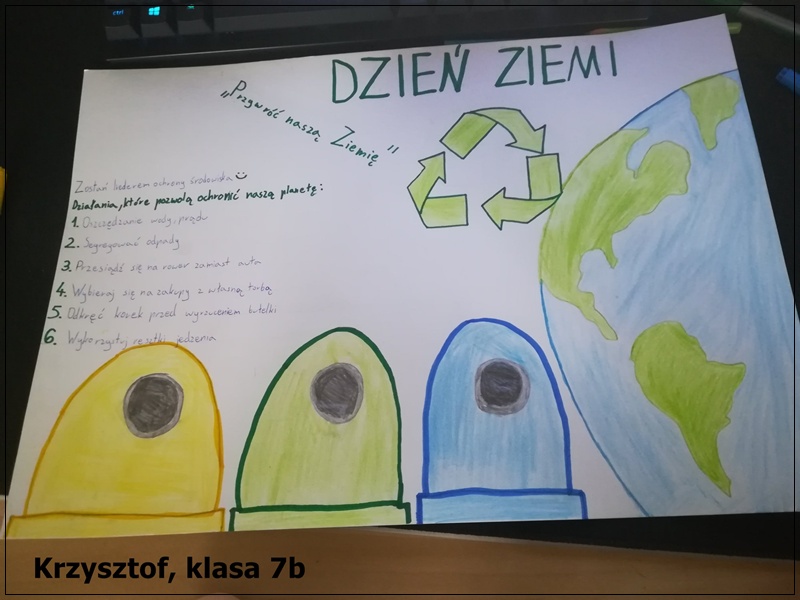 DZIEŃ ZIEMI
„Przywróć naszą Ziemię"
Zostań liederem ochrony środowiska
Działania, które pozwolą ochronić naszą planetę:
1. Oszczędzanie wody, prądu
2. Segregować odpady
3. Przesiądź się na rower zamiast auta
4. Wybieraj się na zakupy z własną torbą
5. Odkręć korek przed wyrzuceniem butelki
6. Wykorzystuj resztki jedzenia
Krzysztof, klasa 7b